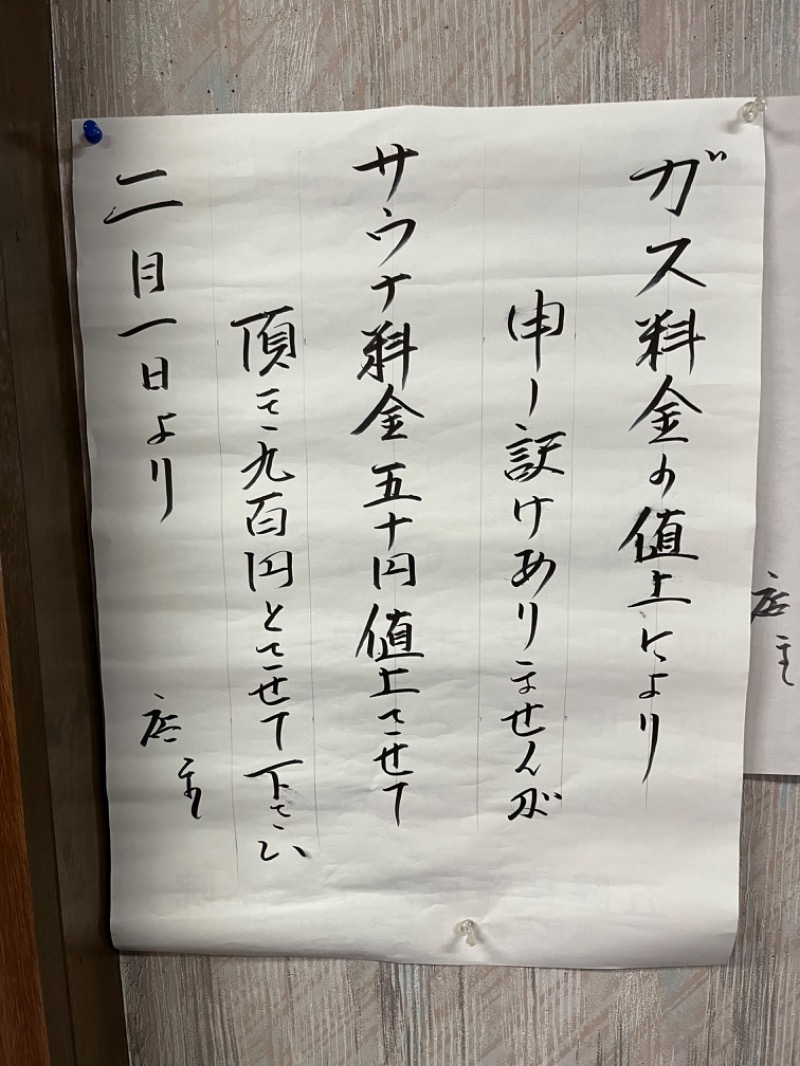 ガス料金の値上により
申し訳けありませんが
サウナ料金五十円値上させて
頂き九百円とさせて下さい
二月一日より
店主
店主